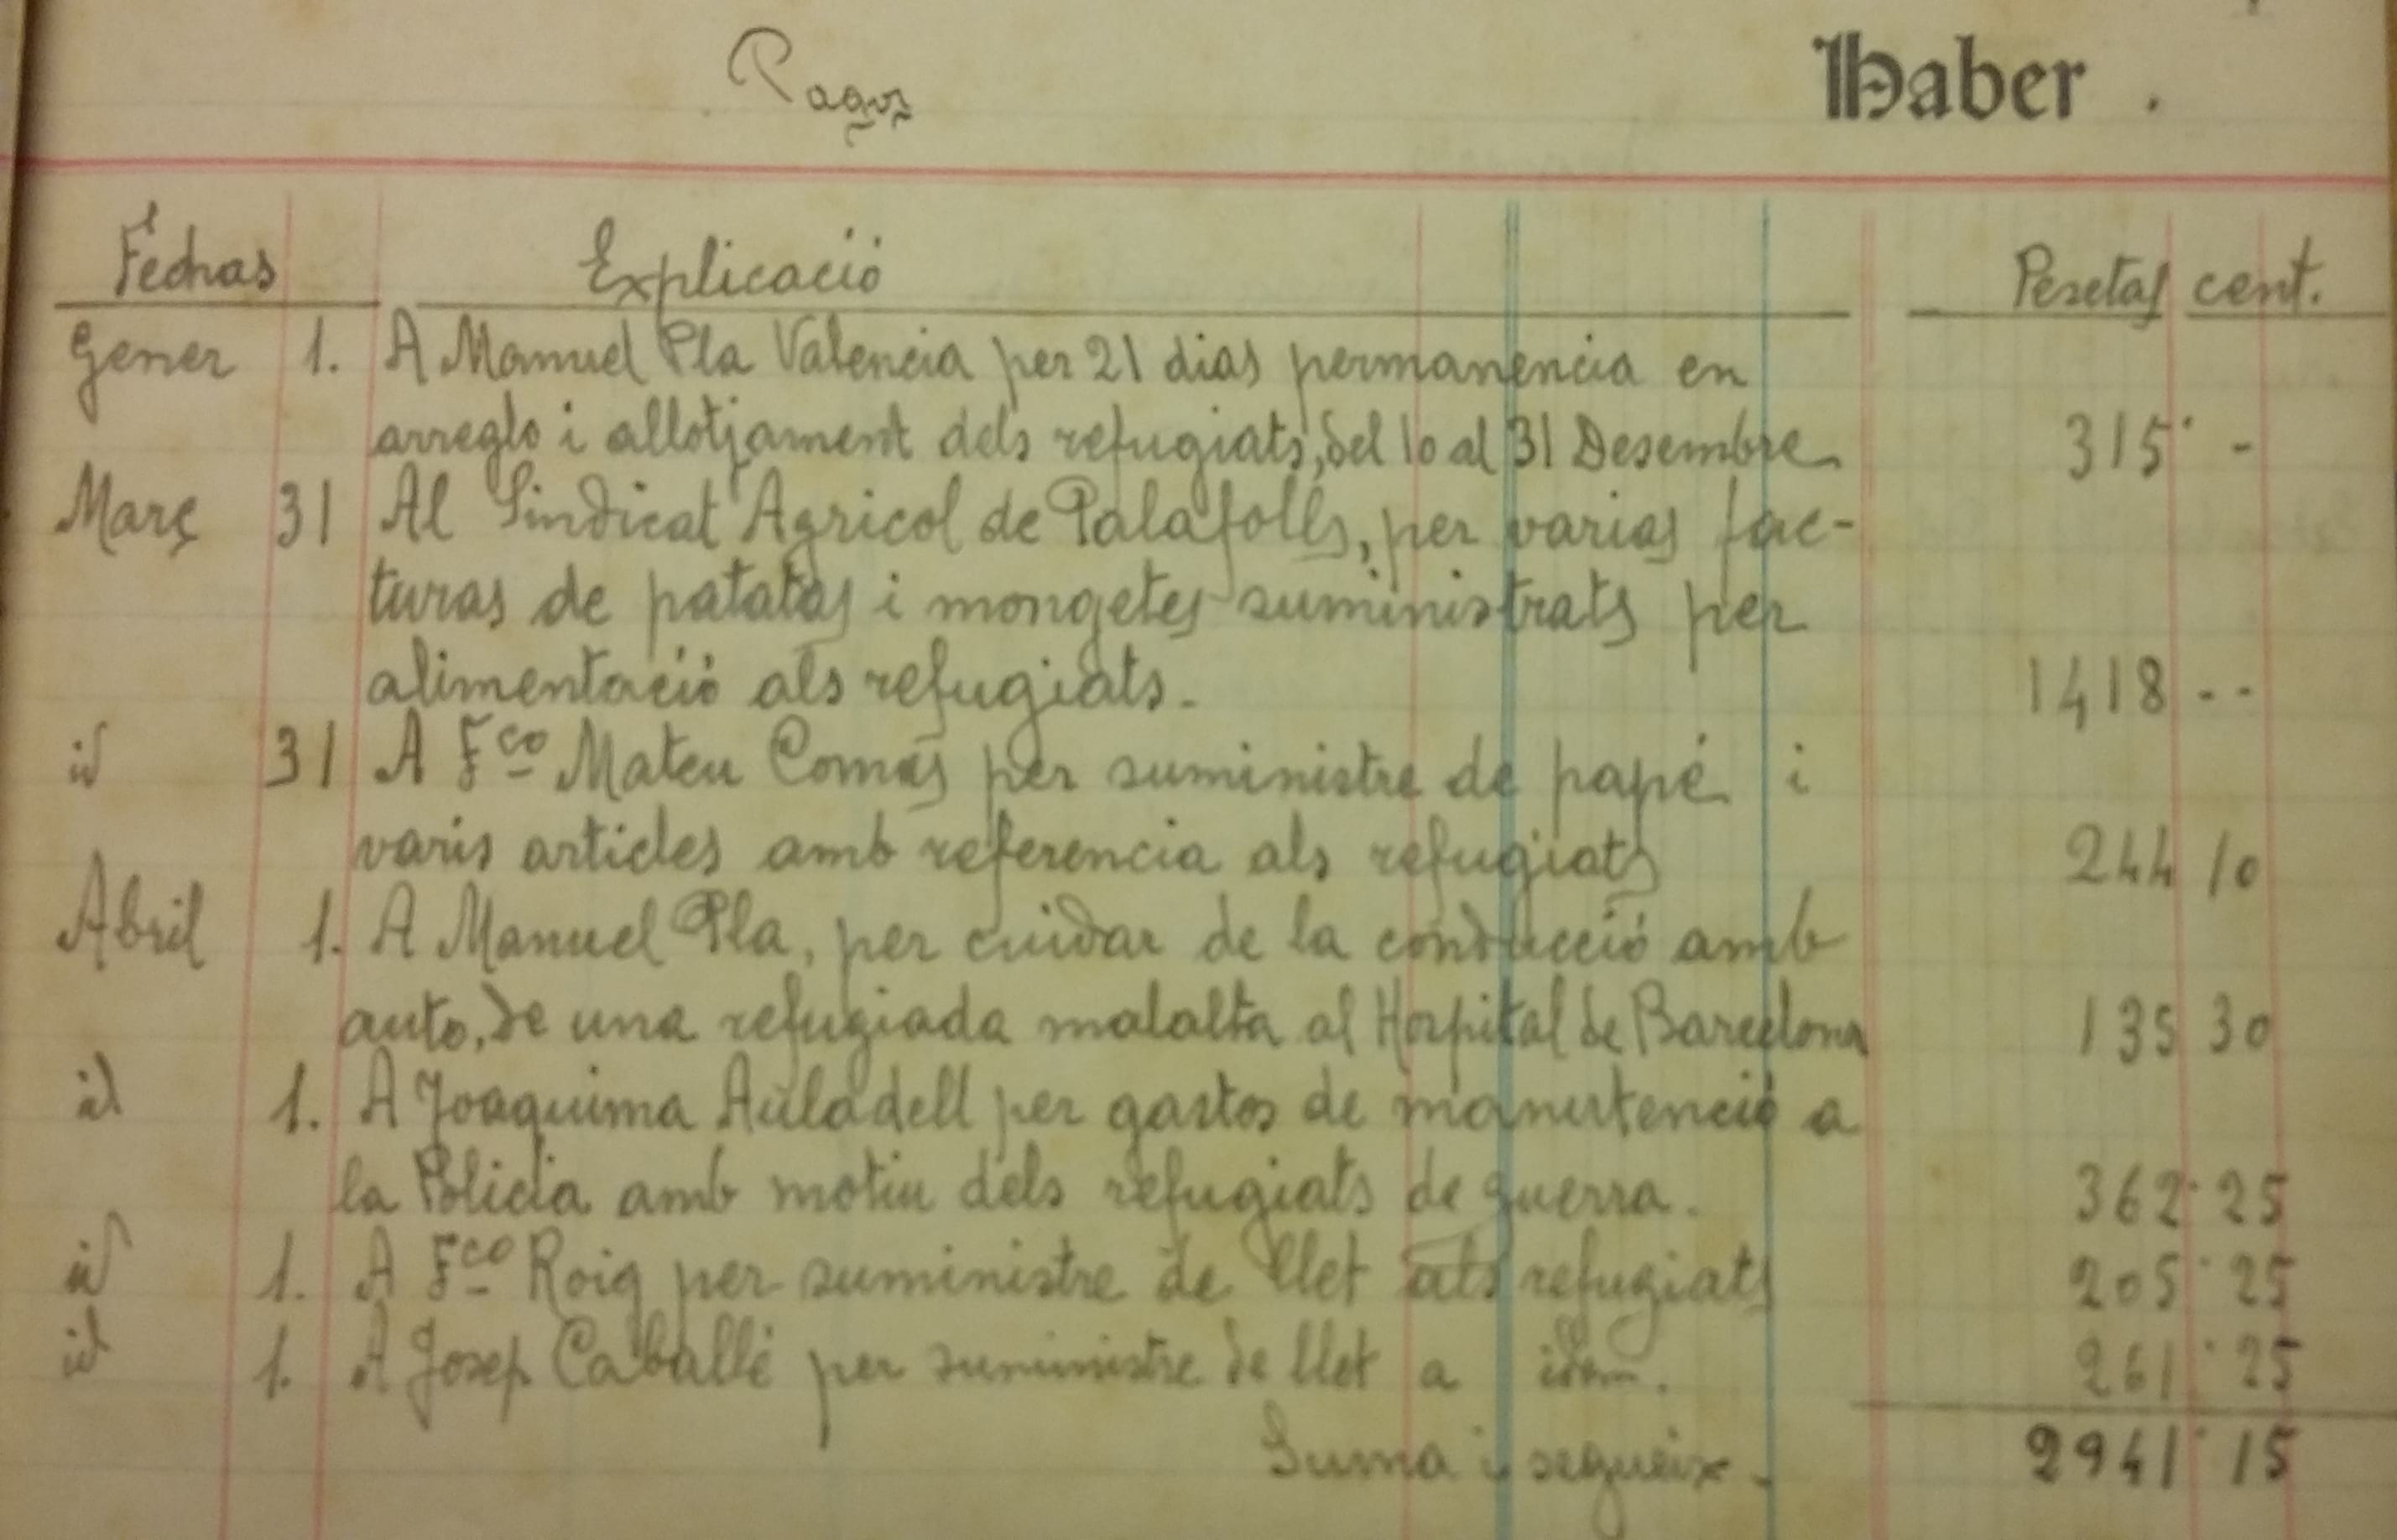 Pagos
Haber.
Fechas Explicació Pesetas cent.
Gener 1. A Manuel Pla Valencia per 21 dias permanencia en
arreglo i allotjament dels refugiats, del 10 al 31 Desembre 315' -
Març 31 Al Sindicat Agricol de Palafolls, per varias fac-
turas de patatas i mongetes suministrats per
alimentació als refugiats. 1418 --
id 31 A Fco Mateu Comas per suministre de papé i
varis articles amb referencia als refugiats 244 10
Abril 1. A Manuel Pla, per cuidar de la conducció amb
auto, de una refugiada malalta al Hospital de Barcelona 135 30
id 1. A Joaquima Auladell per gastos de manutenció a
la Policia amb motiu dels refugiats de guerra. 362' 25
id 1. A Fco Roig per suministre de llet als refugiats 205' 25
id 1. A Josep Caballé per suministre de llet a idem. 261' 25
Suma i segueix - 2941' 15